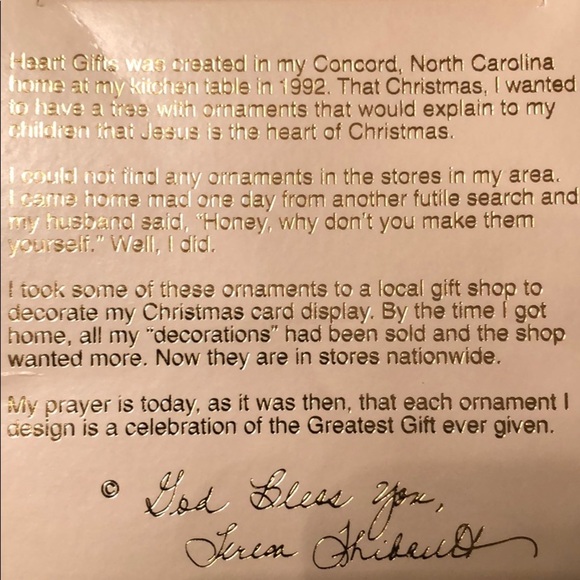 Heart Gifts was created in my Concord, North Carolina
home at my kitchen table in 1992. That Christmas, I wanted
to have a tree with ornaments that would explain to my
children that Jesus is the heart of Christmas.
I could not find any ornaments in the stores in my area.
I came home mad one day from another futile search and
my husband said, "Honey, why don't you make them
yourself." Well, I did.
I took some of these ornaments to a local gift shop to
decorate my Christmas card display. By the time I got
home, all my "decorations" had been sold and the shop
wanted more. Now they are in stores nationwide.
My prayer is today, as it was then, that each ornament I
design is a celebration of the Greatest Gift ever given.
© God Bless You,
Teresa Thibault